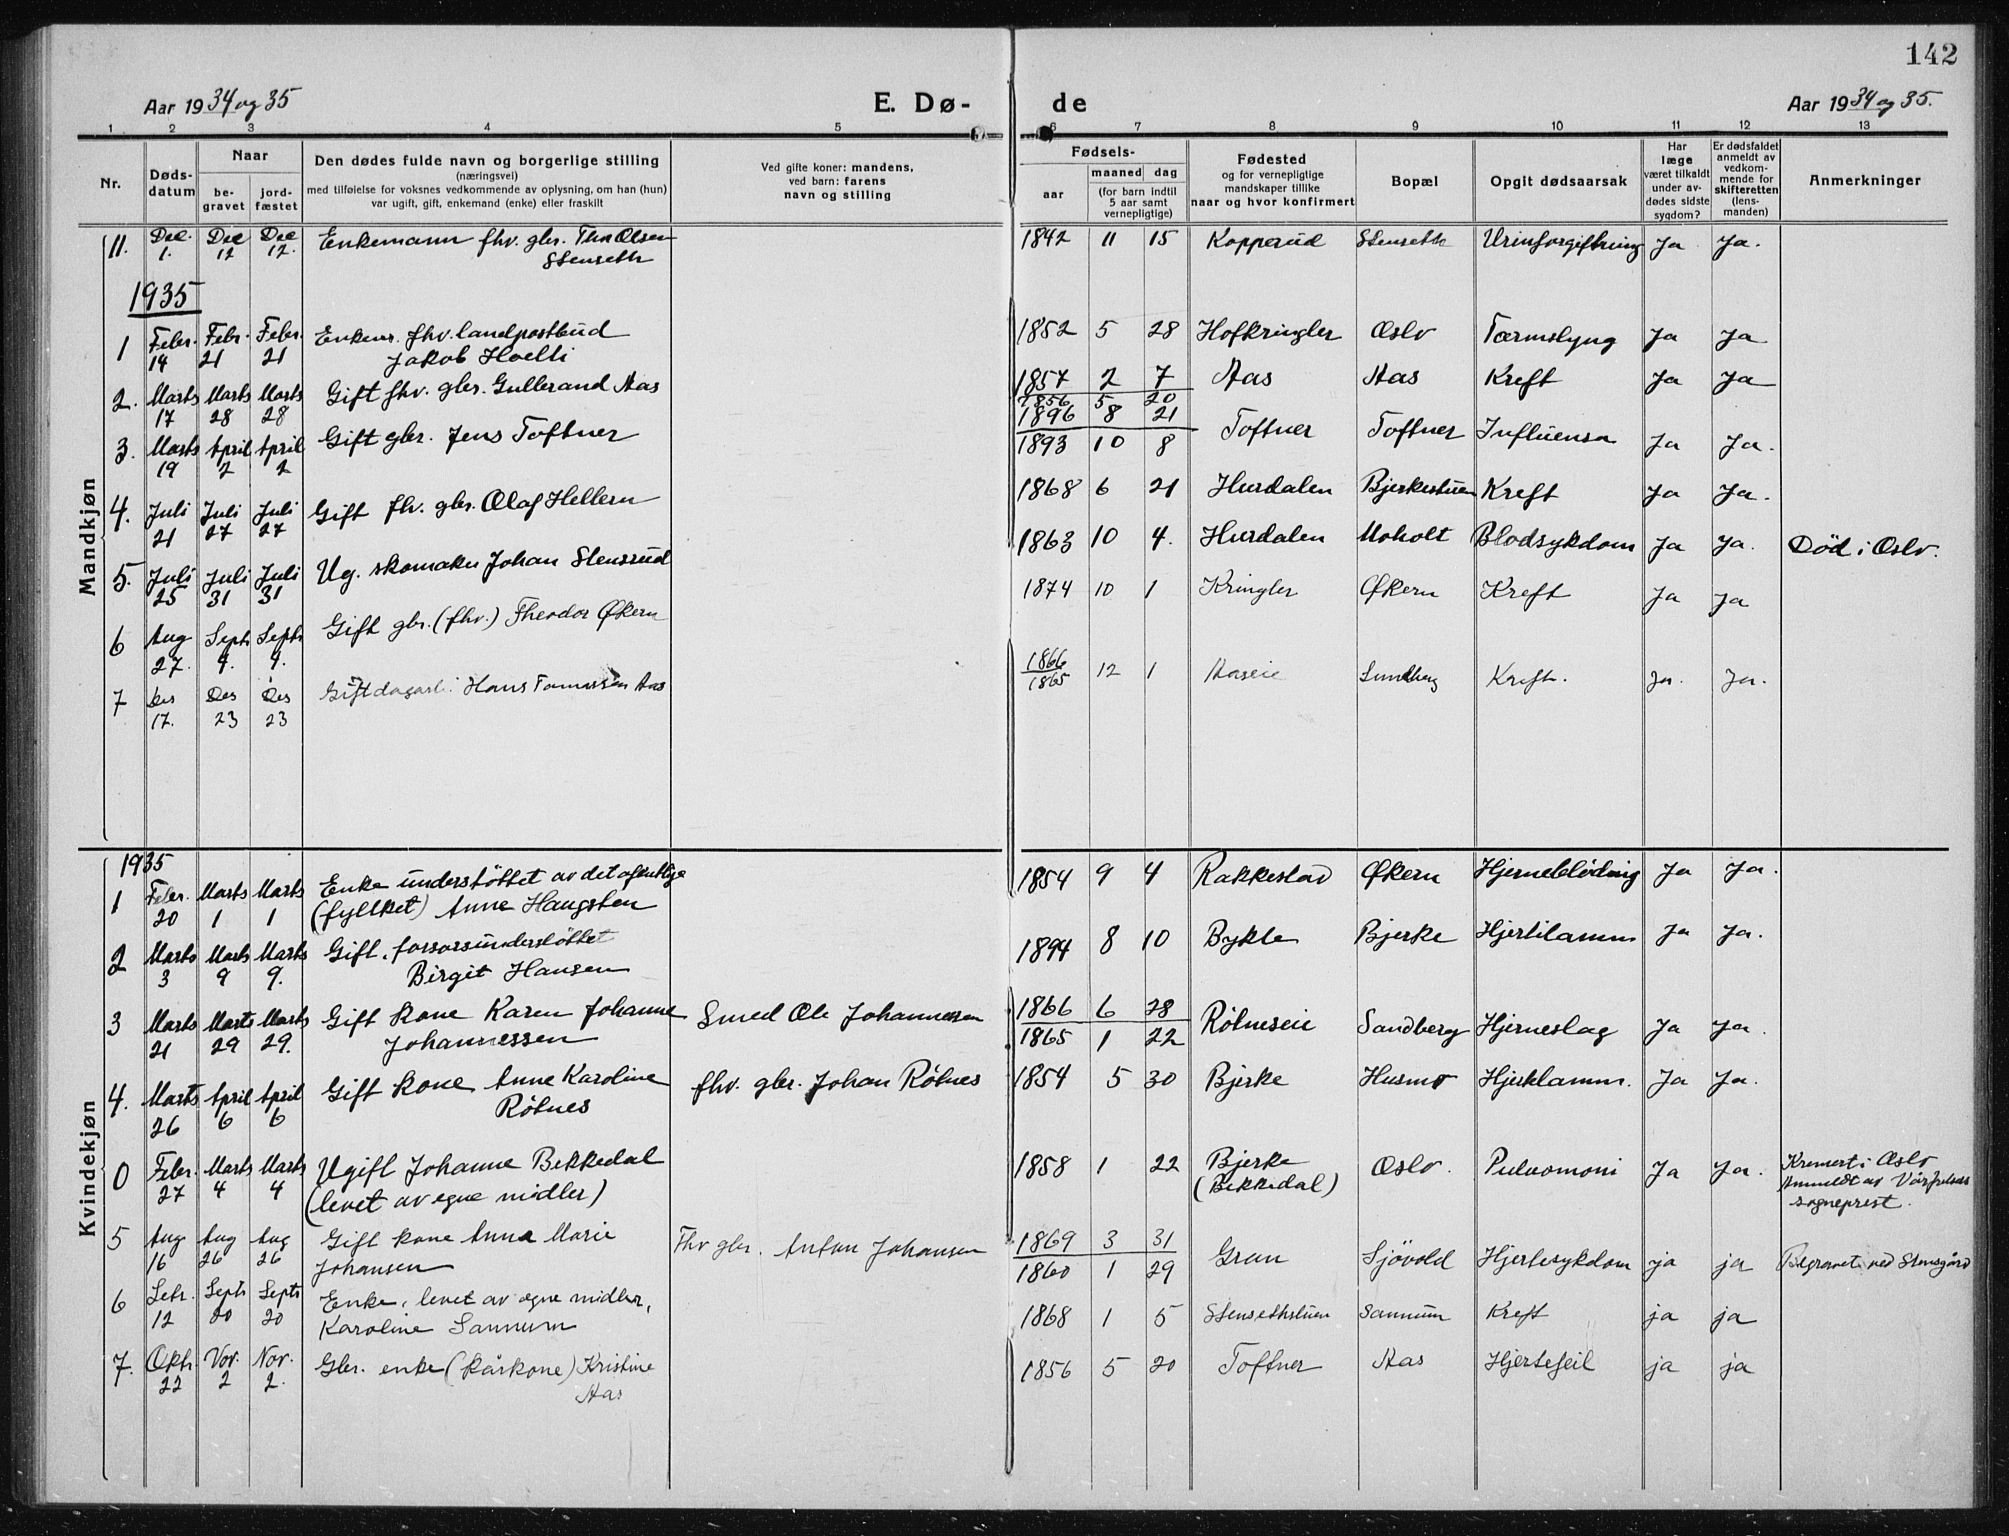 142
Aar 1934 og 35
E. Dø-
de
Aar 1934 og 35.
1 2 3 4 5 6 7 8 9 10 11 12 13
Nr.
Døds-
datum
Naar
be-
gravet
jord-
fæstet
Den dødes fulde navn og borgerlige stilling
(næringsvei)
med tilføielse for voksnes vedkommende av oplysning, om han (hun)
var ugift, gift, enkemand (enke) eller fraskilt
Ved gifte koner: mandens,
ved barn: farens
navn og stilling
Fødsels-
aar
maaned dag
(for barn indtil
5 aar samt
vernepligtige)
Fødested
og for vernepligtige
mandskaper tillike
naar og hvor konfirmert
Bopæl
Opgit dødsaarsak
Har
læge
været tilkaldt
under av-
dødes sidste
sygdom?
Er dødsfaldet
anmeldt av
vedkom-
mende for
skifteretten
(lens-
manden)
Anmerkninger
Mandkjøn
11. Dec. Dec Dec Enkemann fhv. gbr. Thv Olsen 1842 11 15 Kopperud Stenseth Urinforgiftning Ja Ja.
1. 12 12. Stenseth
1935
1 Febr. Febr. Febr. Enkem. fhv. landpostbud 1852 5 28 Hofkringler Oslo Tarmslyng Ja Ja
14 21 21 Jakob Hoelli
2. Marts Marts Marts Gift fhv. gbr. Gullerand Aas 1857 2 7 Aas Aas Kreft Ja Ja
17 28 28 1856 5 20
3. Marts April April Gift gbr. Jens Toftner 1896 8 21 Toftner Toftner Influensa Ja Ja.
19 2 2 1893 10 8
4. Juli Juli Juli Gift fh. gbr. Olaf Hellern 1868 6 21 Hurdalen Bjerkestuen Kreft Ja Ja.
21 27 27
5. Juli Juli Juli Ug. skomaker Johan Stensrud 1863 10 4. Hurdalen Moholt Blodsykdom Ja Ja. Død i Oslo.
25 31 31
6 Aug Sept Sept Gift gbr. (fhv.) Theodor Økern 1874 10 1 Kringler Økern Kreft Ja Ja
27. 4. 4.
7 Des Des Des Gift dagarb. Hans Aas 1866 12 1 Aaseie Sundberg Kreft. Ja. Ja.
17. 23 23 1865
Kvindekjøn
1935
1 Febr. Marts Marts Enke understøttet av det ofentlige 1854 9 4 Rakkestad Økern Hjerneblødning Ja Ja.
20 1 1 (fyllket) Anne Haugsten
2 Marts Marts Marts Gift, forsorsunderstøttet 1894 8 10 Bykle Bjerke Hjertilamm Ja Ja.
3 9 9. Birgit Hansen
3 Marts Marts Marts Gift kone Karen Johanne Smed Ole Johannessen 1866 6 28 Rølneseie Sandberg Hjerneslag Ja Ja.
21 29 29. Johannessen 1865 1 22
4. Marts April April Gift kone Anne Karoline fhv. gbr. Johan Rølnes 1854 5 30 Bjerke Husmo Hjerklamm. Ja Ja.
26 6 6 Rølnes
0 Febr. Marts Marts Ugift Johanne Bekkedal 1858 1 22 Bjerke Oslo. Pulvomoni Ja Ja. Kremert i Oslo
27 4 4 (levet av egne midler) (Bekkedal) Anmeldt av Vårfrelsers
sogneprest.
5 Aug Aug Aug Gift kone Anna Marie Fhv gbr. Anton Johansen 1869 3 31 Gran Sjøvold Hjertesykdom ja ja Begravet ved Stensgård
16 26 26 Johansen 1860 1 29
6 Setr. Sept Sept Enke, levet av egne midler, 1868 1 5 Stensethstuen Sannum Kreft ja ja
12 20 20 Karoline Sannum
7. Oktr. Nov. Nov. Gbr. enke (kårkone) Kristine 1856 5 20 Toftner Aas Hjertefeil ja ja
22 2 2. Aas